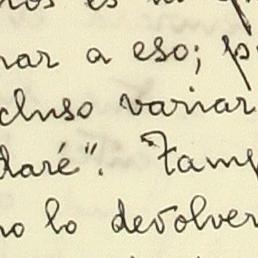 nos es la q
nar a eso; p
cluso variar
daré". "Tamp
no lo devolver